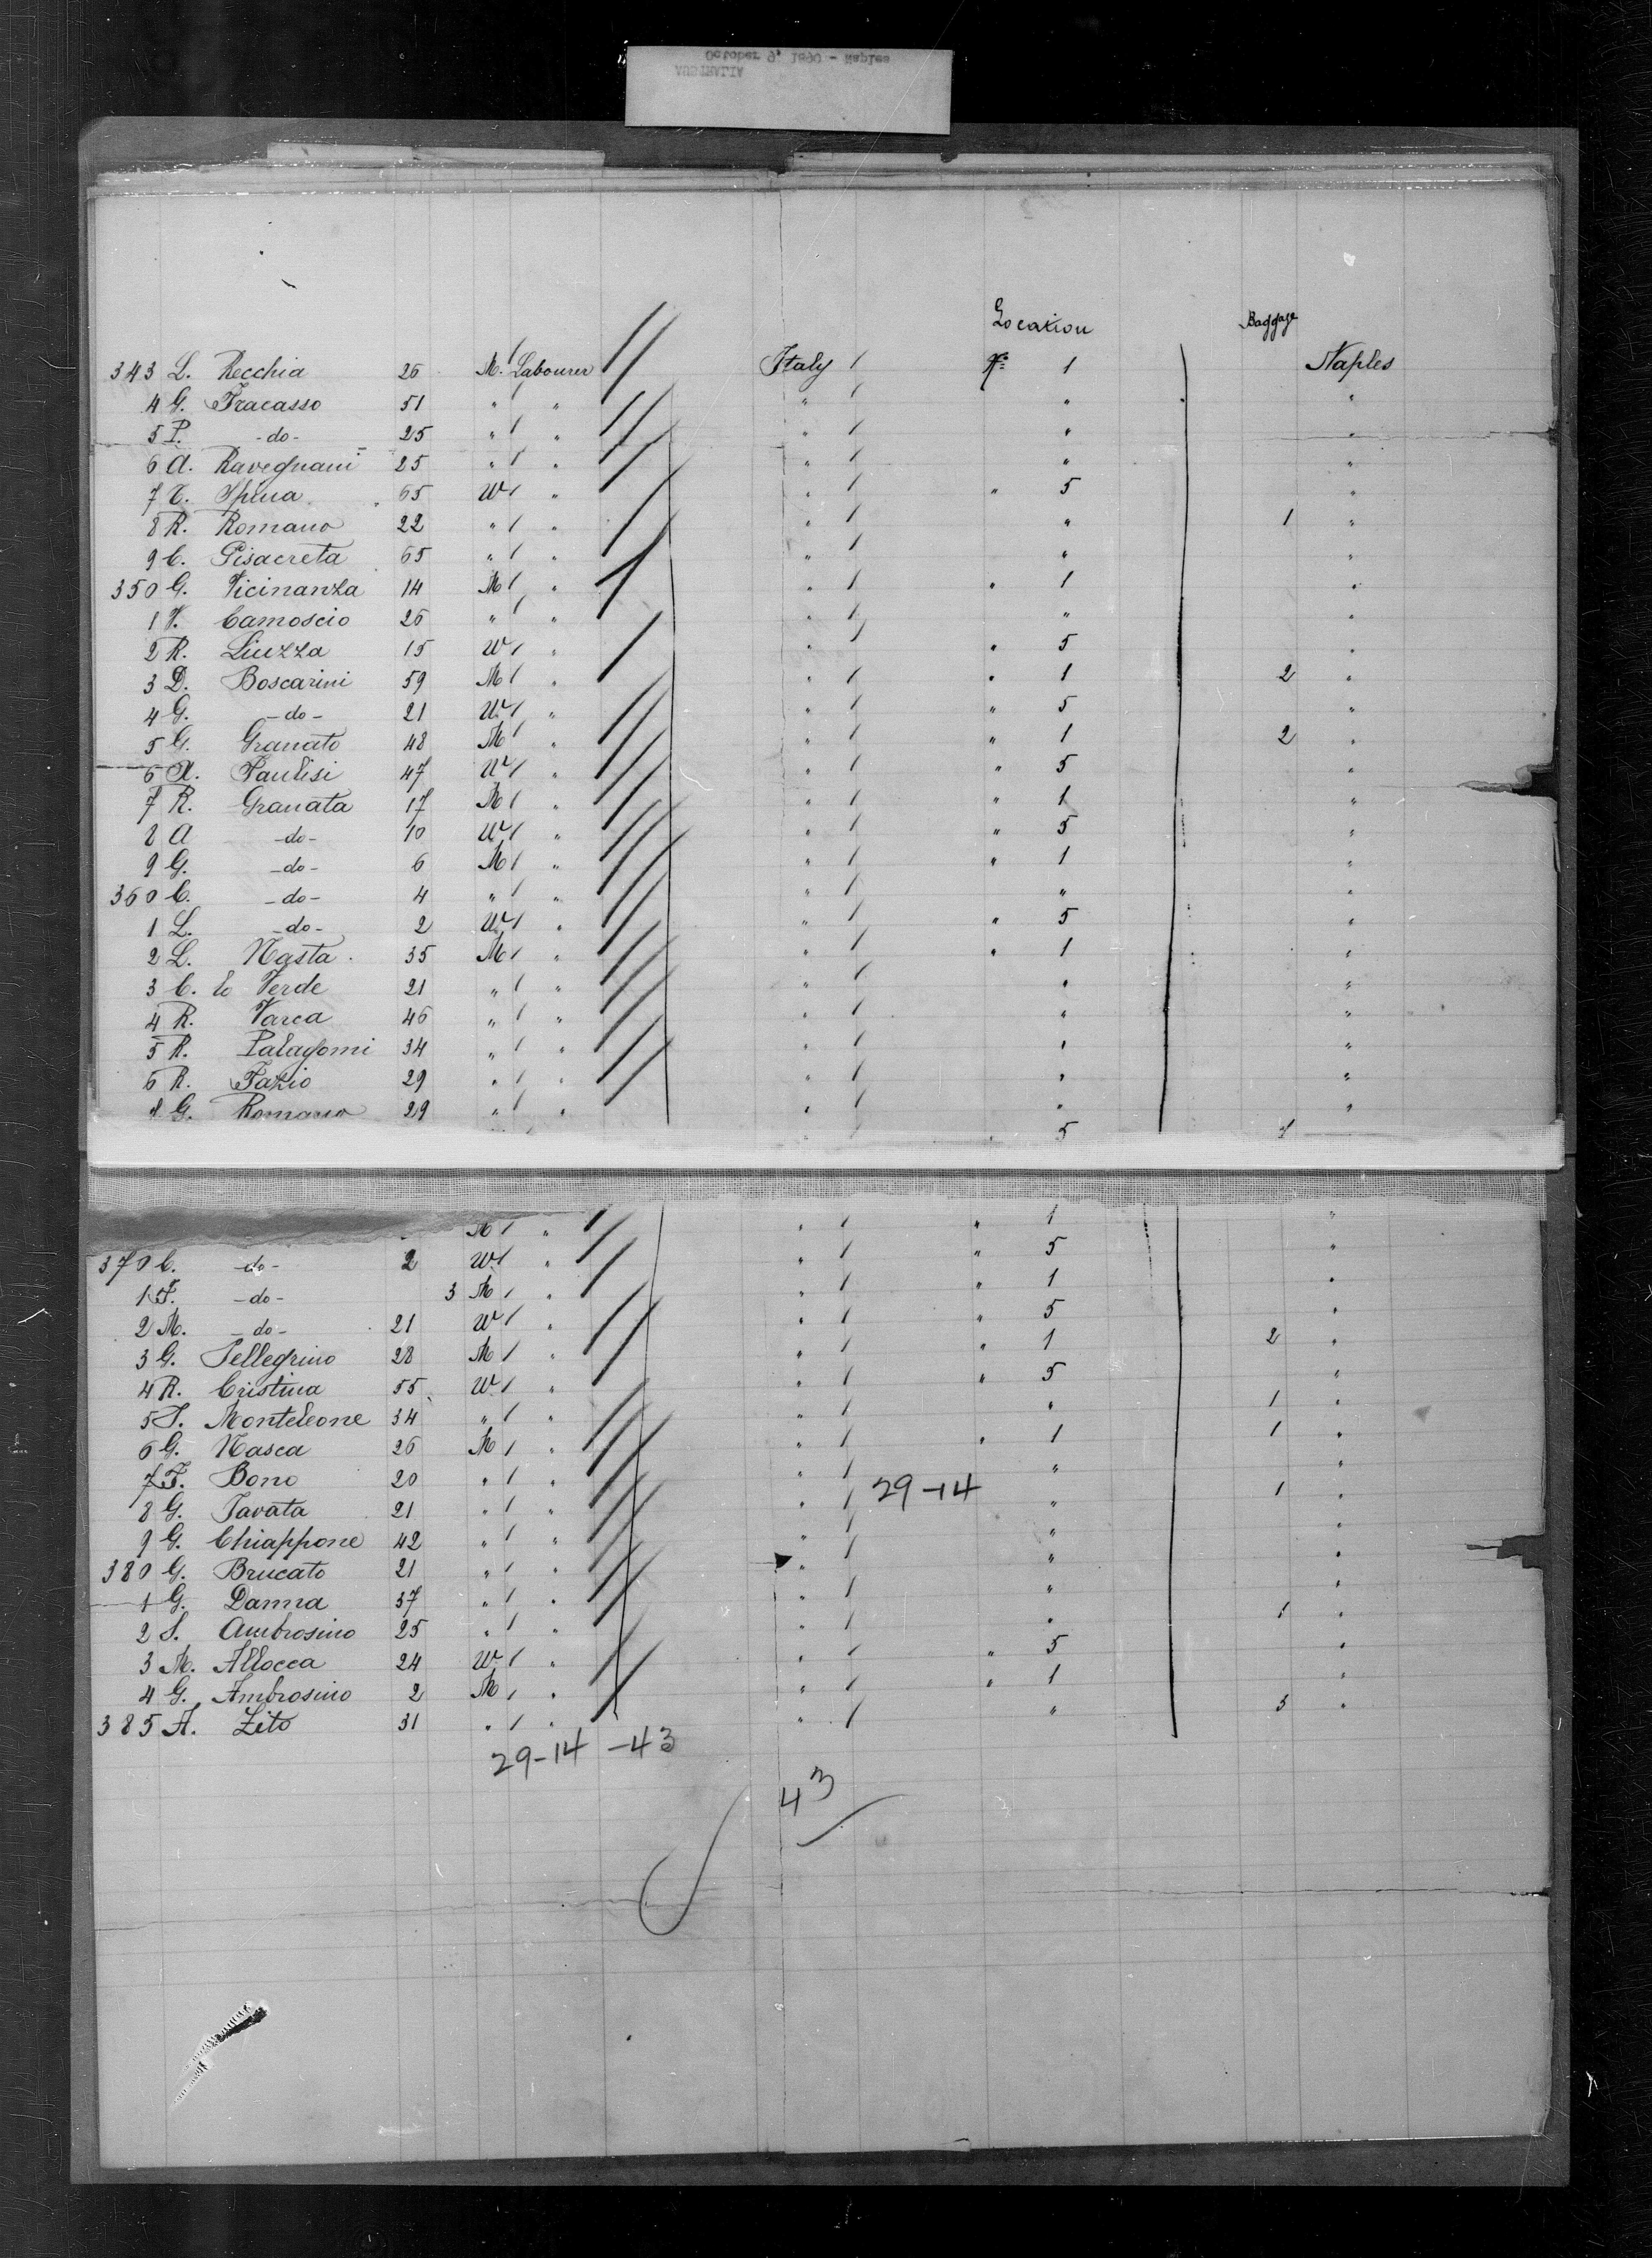 October 9, 1890 - Naples
AUSTRALIA
Location Baggage
343 L. Recchia 26 M. 1 Labourer Italy 1 No. 1 Naples
4 G. Fracasso 51 " 1 " " 1 " "
5 P. -do- 25 " 1 " " 1 " "
6 A. Ravegnani 25 " 1 " " 1 " "
7 C. Spina 65 W 1 " " 1 " 5 "
8 R. Romano 22 " 1 " " 1 " 1 "
9 C. Pisacreta 65 " 1 " " 1 " "
350 G. Vicinanza 14 M 1 " " 1 " 1 "
1 V. Camoscio 26 " 1 " " 1 " "
2 R. Liuzza 15 W 1 " " 1 " 5 "
3 D. Boscarini 59 M 1 " " 1 " 1 2 "
4 G. -do- 21 W 1 " " 1 " 5 "
5 G. Granato 48 M 1 " " 1 " 1 2 "
6 A. Paulisi 47 W 1 " " 1 " 5 "
7 R. Granata 17 M 1 " " 1 " 1 "
8 A -do- 10 W 1 " " 1 " 5 "
9 G. -do- 6 M 1 " " 1 " 1 "
360 C. -do- 4 " 1 " " 1 " "
1 L. -do- 2 W 1 " " 1 " 5 "
2 L. Nasta 35 M 1 " " 1 " 1 "
3 C. lo Verde 21 " 1 " " 1 " "
4 R. Varca 46 " 1 " " 1 " "
5 R. Palagonni 34 " 1 " " 1 " "
6 R. Fazio 29 " 1 " " 1 " "
G. Romano 29 " 1 " " 1 " "
1 " 5
M 1 " " 1 " 1 "
370 C. -do- 2 W. 1 " " 1 " 5 "
1 F. -do- 3 M 1 " " 1 " 1 "
2 M. -do- 21 W 1 " " 1 " 5 "
3 G. Pellegrino 28 M 1 " " 1 " 1 2 "
4 R. Cristina 55 W. 1 " " 1 " 5 "
5 S. Monteleone 34 " 1 " " 1 " 1 "
6 G. Nasca 26 M 1 " " 1 " 1 1 "
7 F. Bono 20 " 1 " " 1 " "
8 G. Tavata 21 " 1 " " 1 29-14 " 1 "
9 G. Chiappone 42 " 1 " " 1 " "
380 G. Brucato 21 " 1 " " 1 " "
1 G. Danna 37 " 1 " " 1 " "
2 S. Ambrosino 25 " 1 " " 1 " 1 "
3 M. Allocca 24 W. 1 " " 1 " 5 "
4 G. Ambrosino 2 M 1 " " 1 " 1 "
385 A. Zito 31 " 1 " " 1 " 3 "
29-14 -43
43